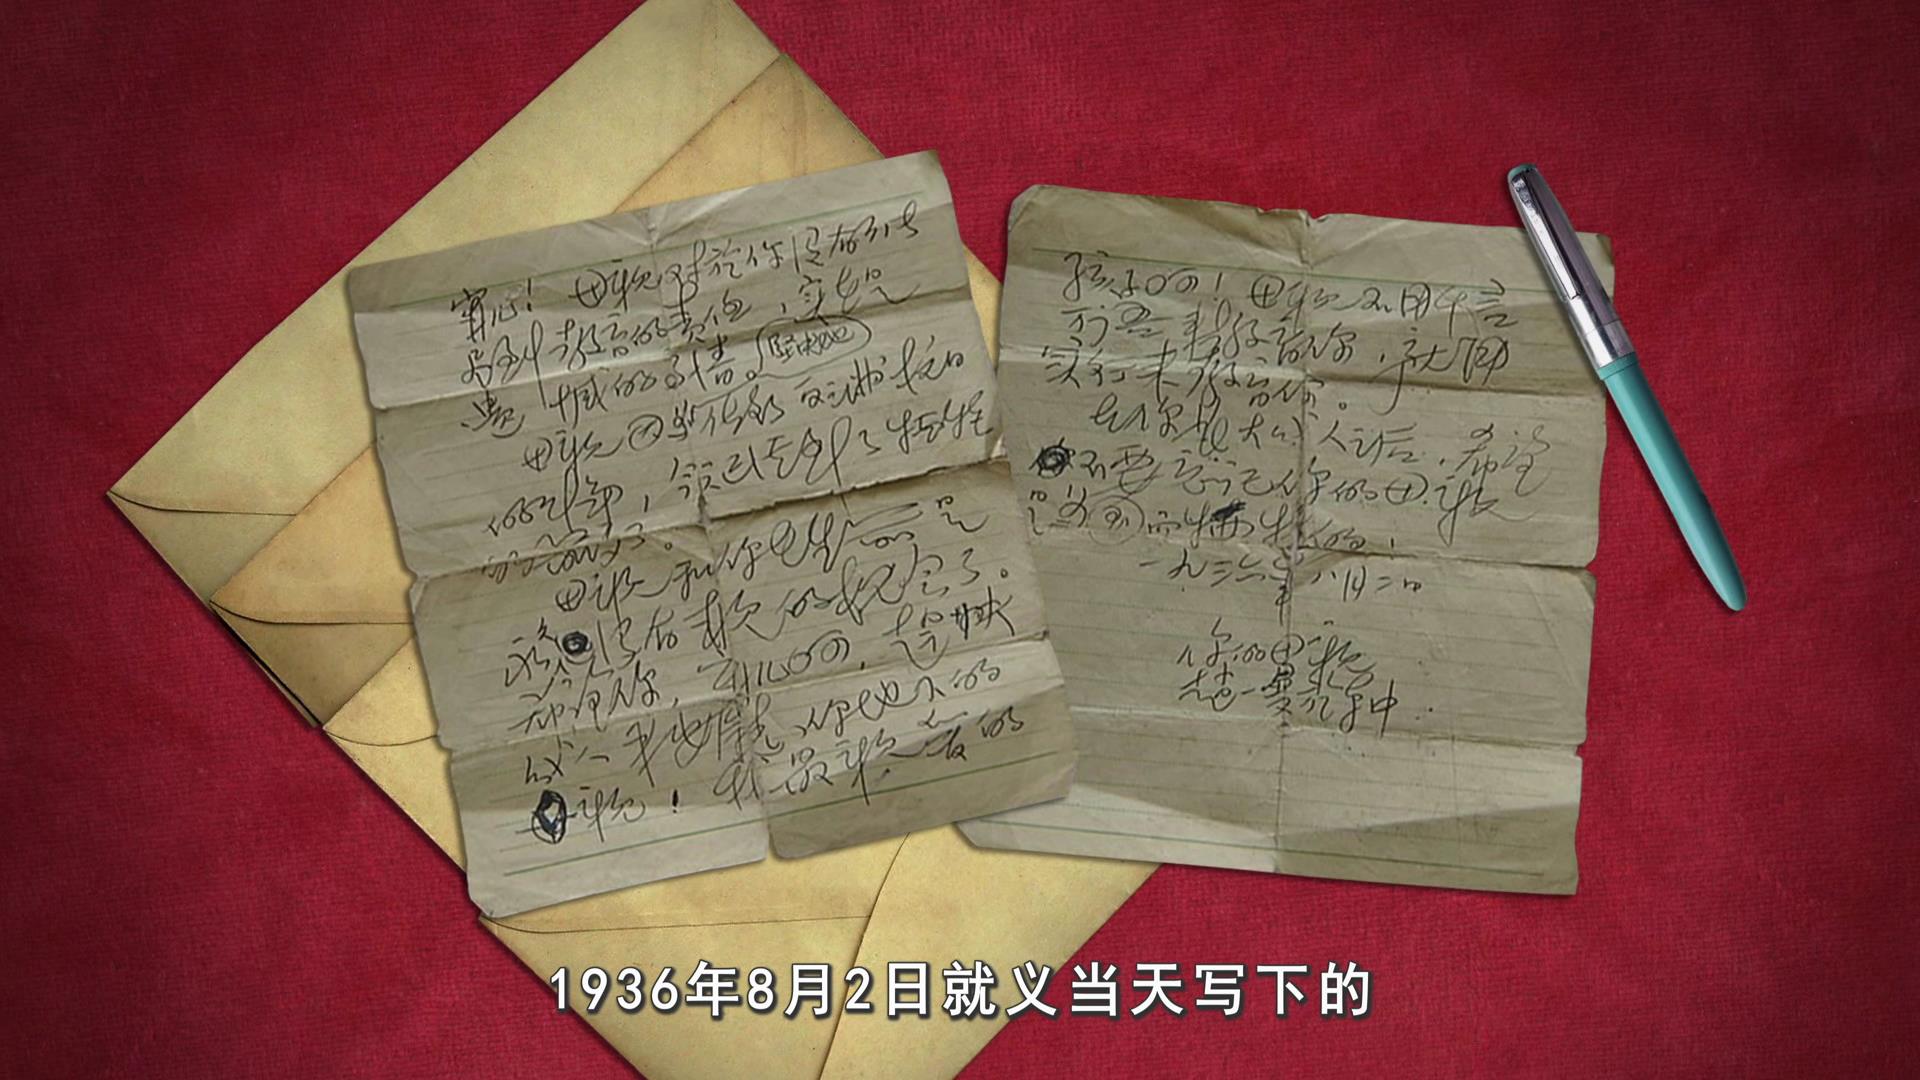 宁儿！母亲对于你没有能尽
到教育的责任，实在是
遗憾的事情。
母亲因为坚决地做了反满抗日
的斗争，今天已经到了牺牲
的前夕了。
母亲和你在生前是
永久没有再见的机会了。
希望你，宁儿啊！赶快
成人，来安慰你地下的
母亲！我最亲爱的
孩子啊！母亲不用千言
万语来教育你，就用
实行来教育你。
在你长大成人之后，希望
不要忘记你的母亲
是为国而牺牲的！
一九三六年八月二日
你的母亲
赵一曼于车中
1936年8月2日就义当天写下的